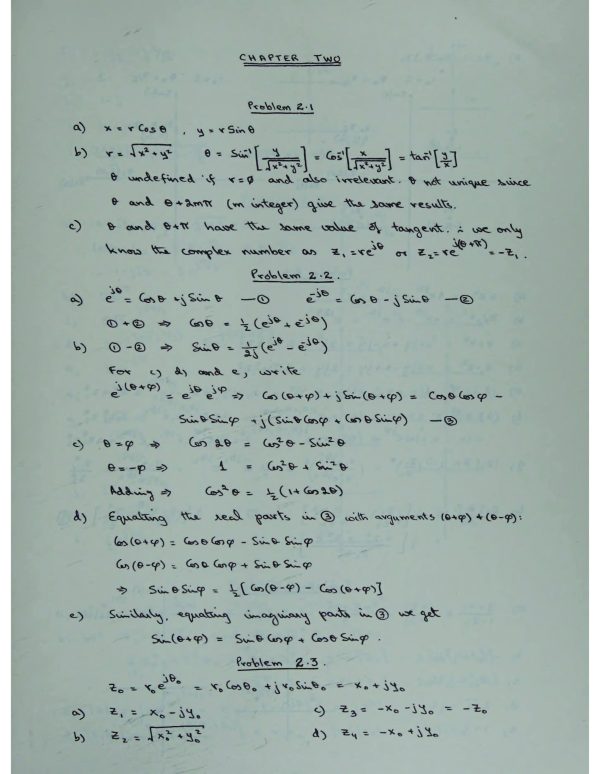 CHAPTER TWO
Problem 2.1
a) x = r Cos θ , y = r Sin θ
b) r = √(x²+y²) θ = Sin⁻¹[y/√(x²+y²)] = Cos⁻¹[x/√(x²+y²)] = tan⁻¹[y/x]
θ undefined if r = ø and also irrelevant. θ not unique since
θ and θ+2mπ (m integer) give the same results.
c) θ and θ+π have the same value of tangent. ∴ we only
know the complex number as z₁ = re^{jθ} or z₂ = re^{j(θ+π)} = -z₁.
Problem 2.2.
a) e^{jθ} = Cos θ + j Sin θ —① e^{-jθ} = Cos θ - j Sin θ —②
① + ② ⇒ Cos θ = ½(e^{jθ} + e^{-jθ})
b) ① - ② ⇒ Sin θ = 1/2j (e^{jθ} - e^{-jθ})
For c, d, and e, write
e^{j(θ+φ)} = e^{jθ} e^{jφ} ⇒ Cos(θ+φ) + j Sin(θ+φ) = Cos θ Cos φ -
Sin θ Sin φ + j(Sin θ Cos φ + Cos θ Sin φ) —③
c) θ = φ ⇒ Cos 2θ = Cos² θ - Sin² θ
θ = -φ ⇒ 1 = Cos² θ + Sin² θ
Adding ⇒ Cos² θ = ½(1 + Cos 2θ)
d) Equating the real parts in ③ with arguments (θ+φ) + (θ-φ):
Cos(θ+φ) = Cos θ Cos φ - Sin θ Sin φ
Cos(θ-φ) = Cos θ Cos φ + Sin θ Sin φ
⇒ Sin θ Sin φ = ½[Cos(θ-φ) - Cos(θ+φ)]
e) Similarly, equating imaginary parts in ③ we get
Sin(θ+φ) = Sin θ Cos φ + Cos θ Sin φ .
Problem 2.3
z₀ = r₀ e^{jθ₀} = r₀ Cos θ₀ + j r₀ Sin θ₀ = x₀ + j y₀
a) z₁ = x₀ - j y₀ c) z₃ = -x₀ - j y₀ = -z₀
b) z₂ = √(x₀² + y₀²) d) z₄ = -x₀ + j y₀